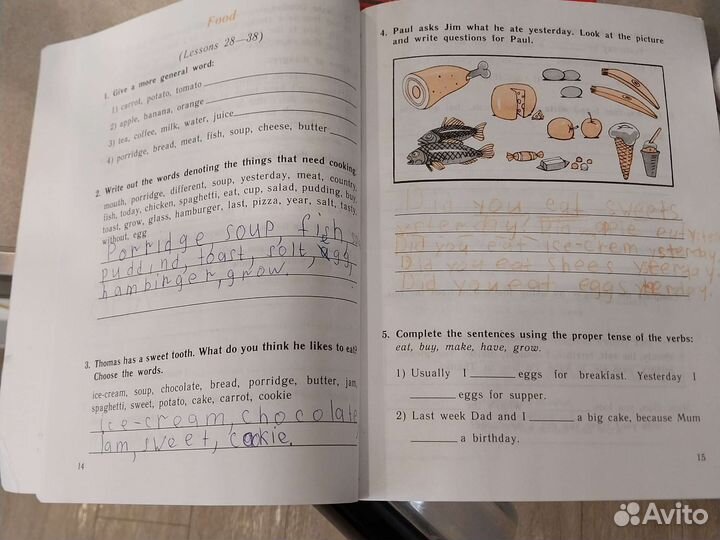 Food
(Lessons 28—38)
1. Give a more general word:
1) carrot, potato, tomato
2) apple, banana, orange
3) tea, coffee, milk, water, juice
4) porridge, bread, meat, fish, soup, cheese, butter
2. Write out the words denoting the things that need cooking.
mouth, porridge, different, soup, yesterday, meat, country,
fish, today, chicken, spaghetti, eat, cup, salad, pudding, buy,
toast, grow, glass, hamburger, last, pizza, year, salt, tasty,
without, egg
Porridge, soup, fish,
puddind, toast, solt, egg,
hambinger, grow.
3. Thomas has a sweet tooth. What do you think he likes to eat?
Choose the words.
ice-cream, soup, chocolate, bread, porridge, butter, jam,
spaghetti, sweet, potato, cake, carrot, cookie
ice-cream, chocolate,
Jam, sweet, cookie.
14
4. Paul asks Jim what he ate yesterday. Look at the picture
and write questions for Paul.
Did you eat sweets
yesterday?
Did you eat ice-crem yesterday.
Did you eat shees yesterday.
Did you eat eggs
5. Complete the sentences using the proper tense of the verbs:
eat, buy, make, have, grow.
1) Usually I eggs for breakfast. Yesterday I
eggs for supper.
2) Last week Dad and I a big cake, because Mum
a birthday.
15
Avito